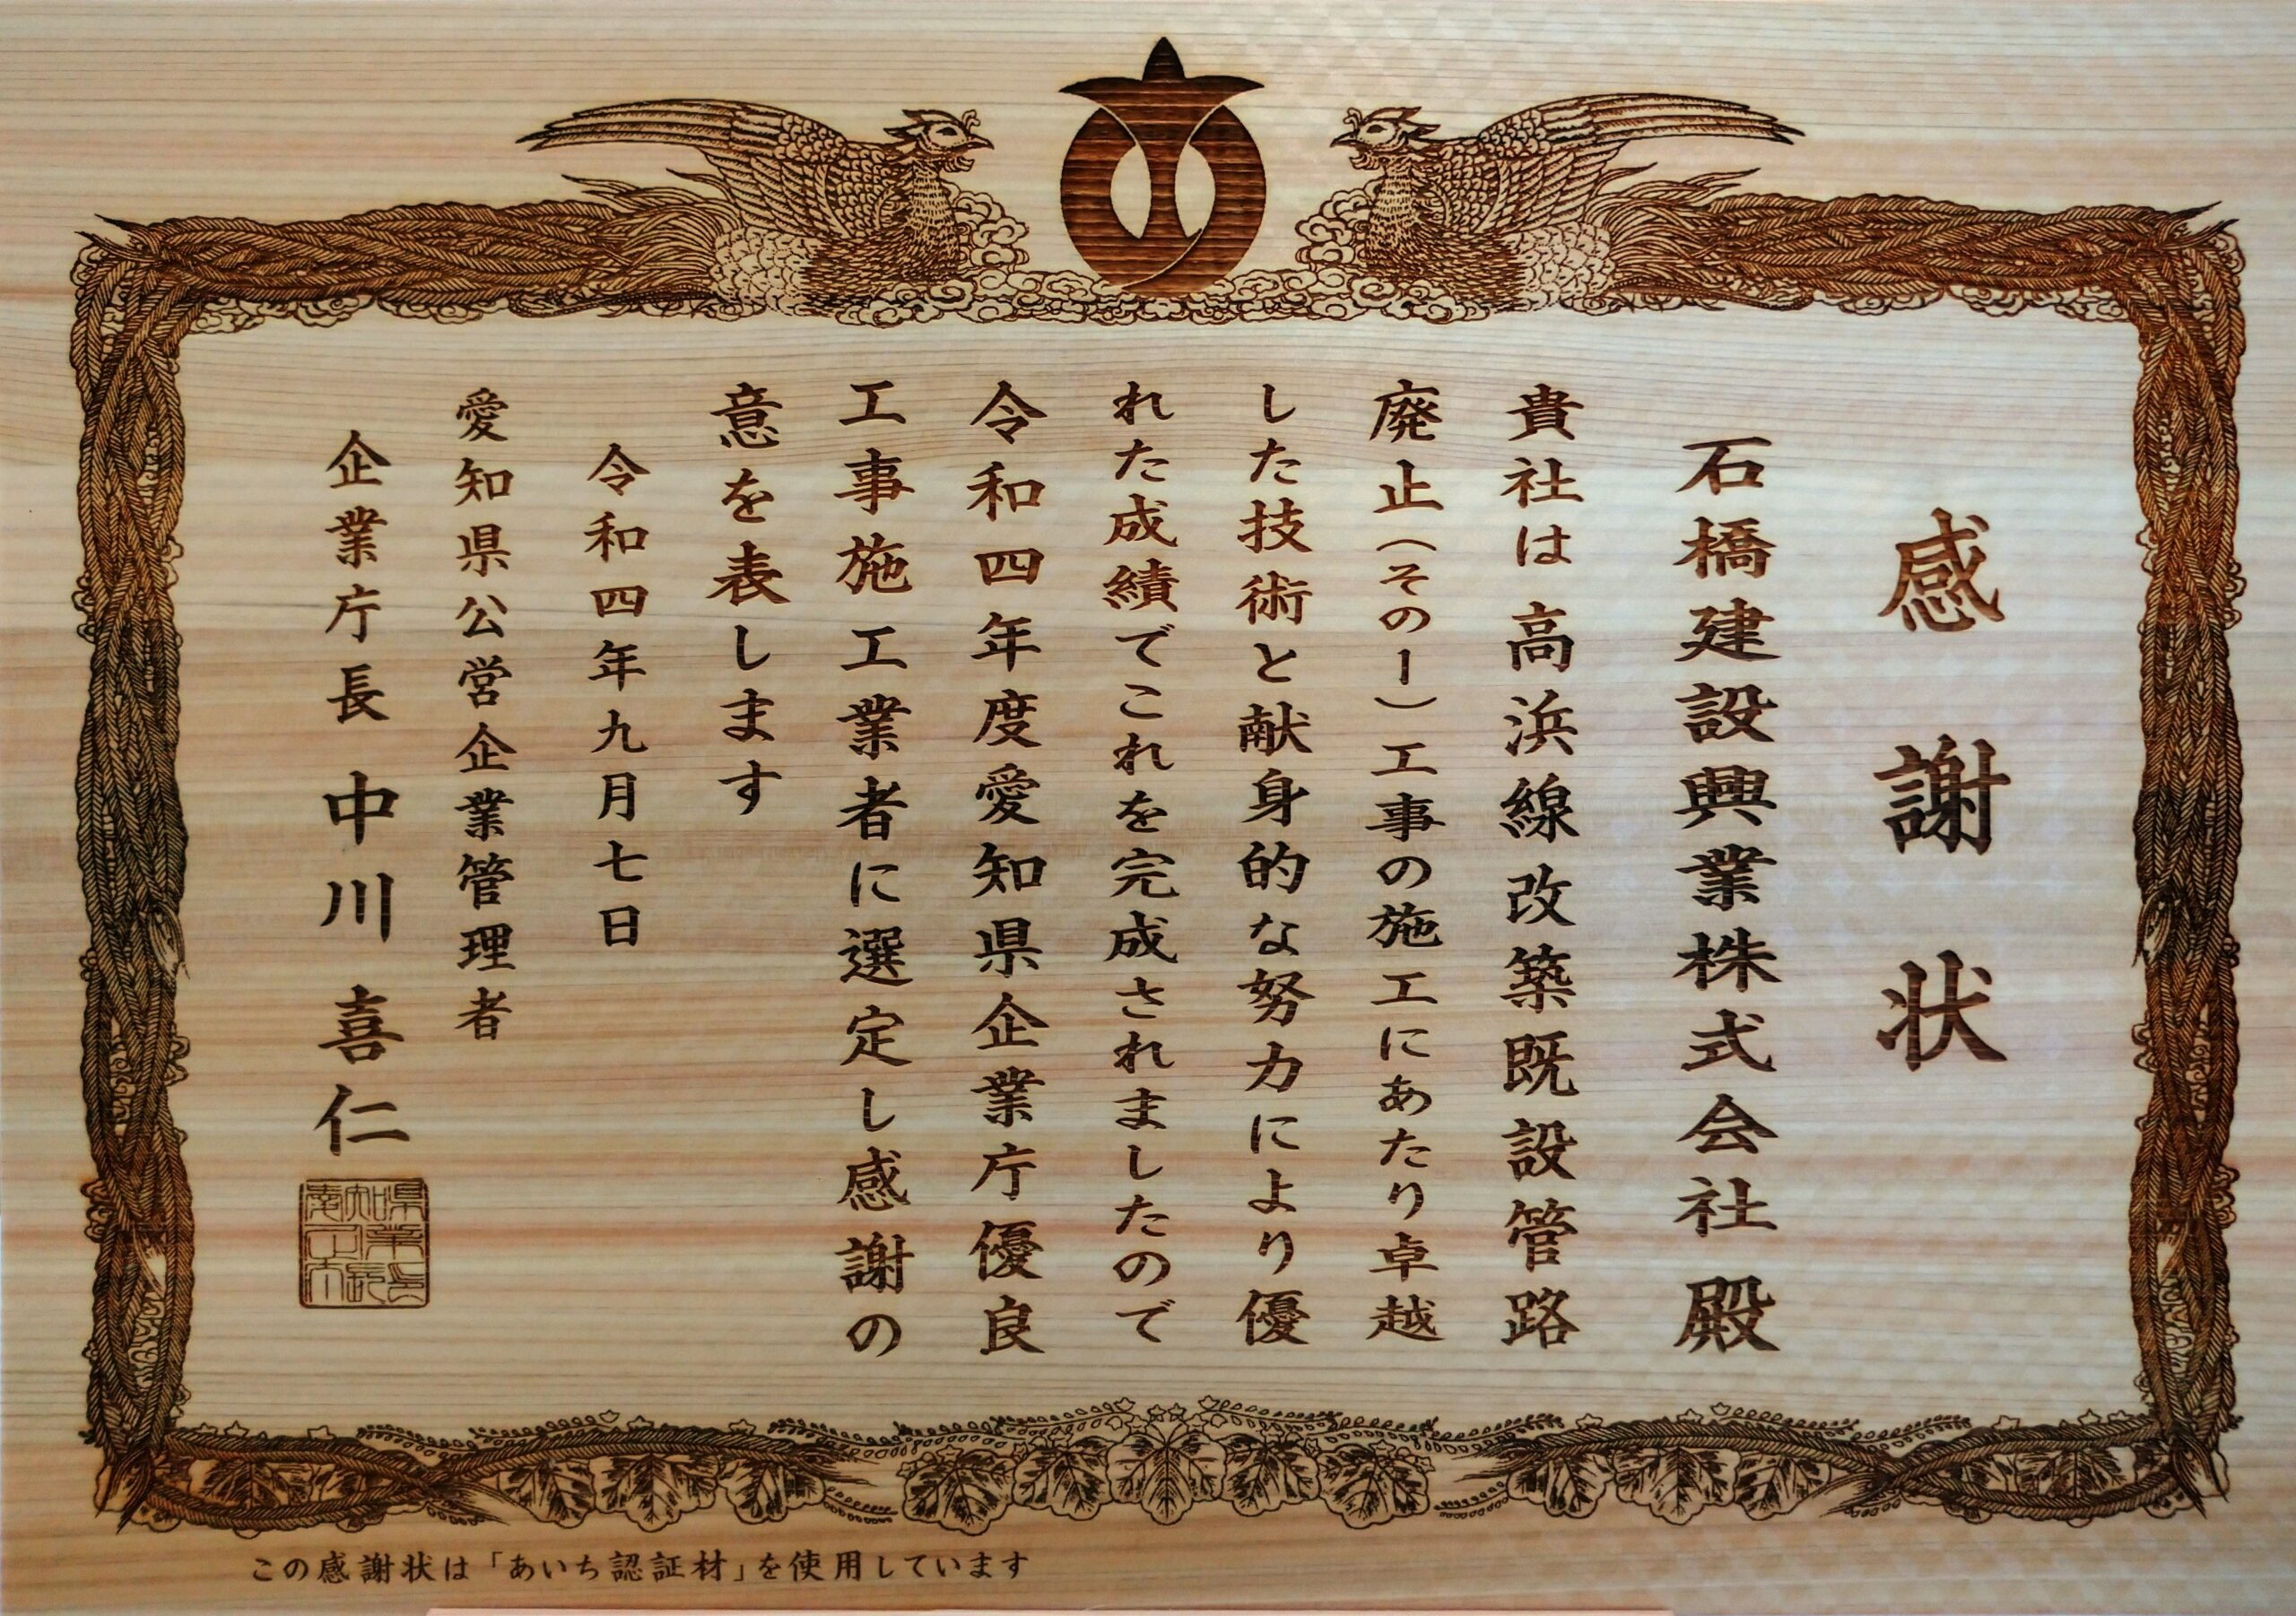 感謝状
石橋建設興業株式会社殿
貴社は高浜線改築既設管路
廃止(その1)工事の施工にあたり卓越
した技術と献身的な努力により優
れた成績でこれを完成されましたので
令和四年度愛知県企業庁優良
工事施工業者に選定し感謝の
意を表します
令和四年九月七日
愛知県公営企業管理者
企業庁長 中川喜仁
この感謝状は「あいち認証材」を使用しています